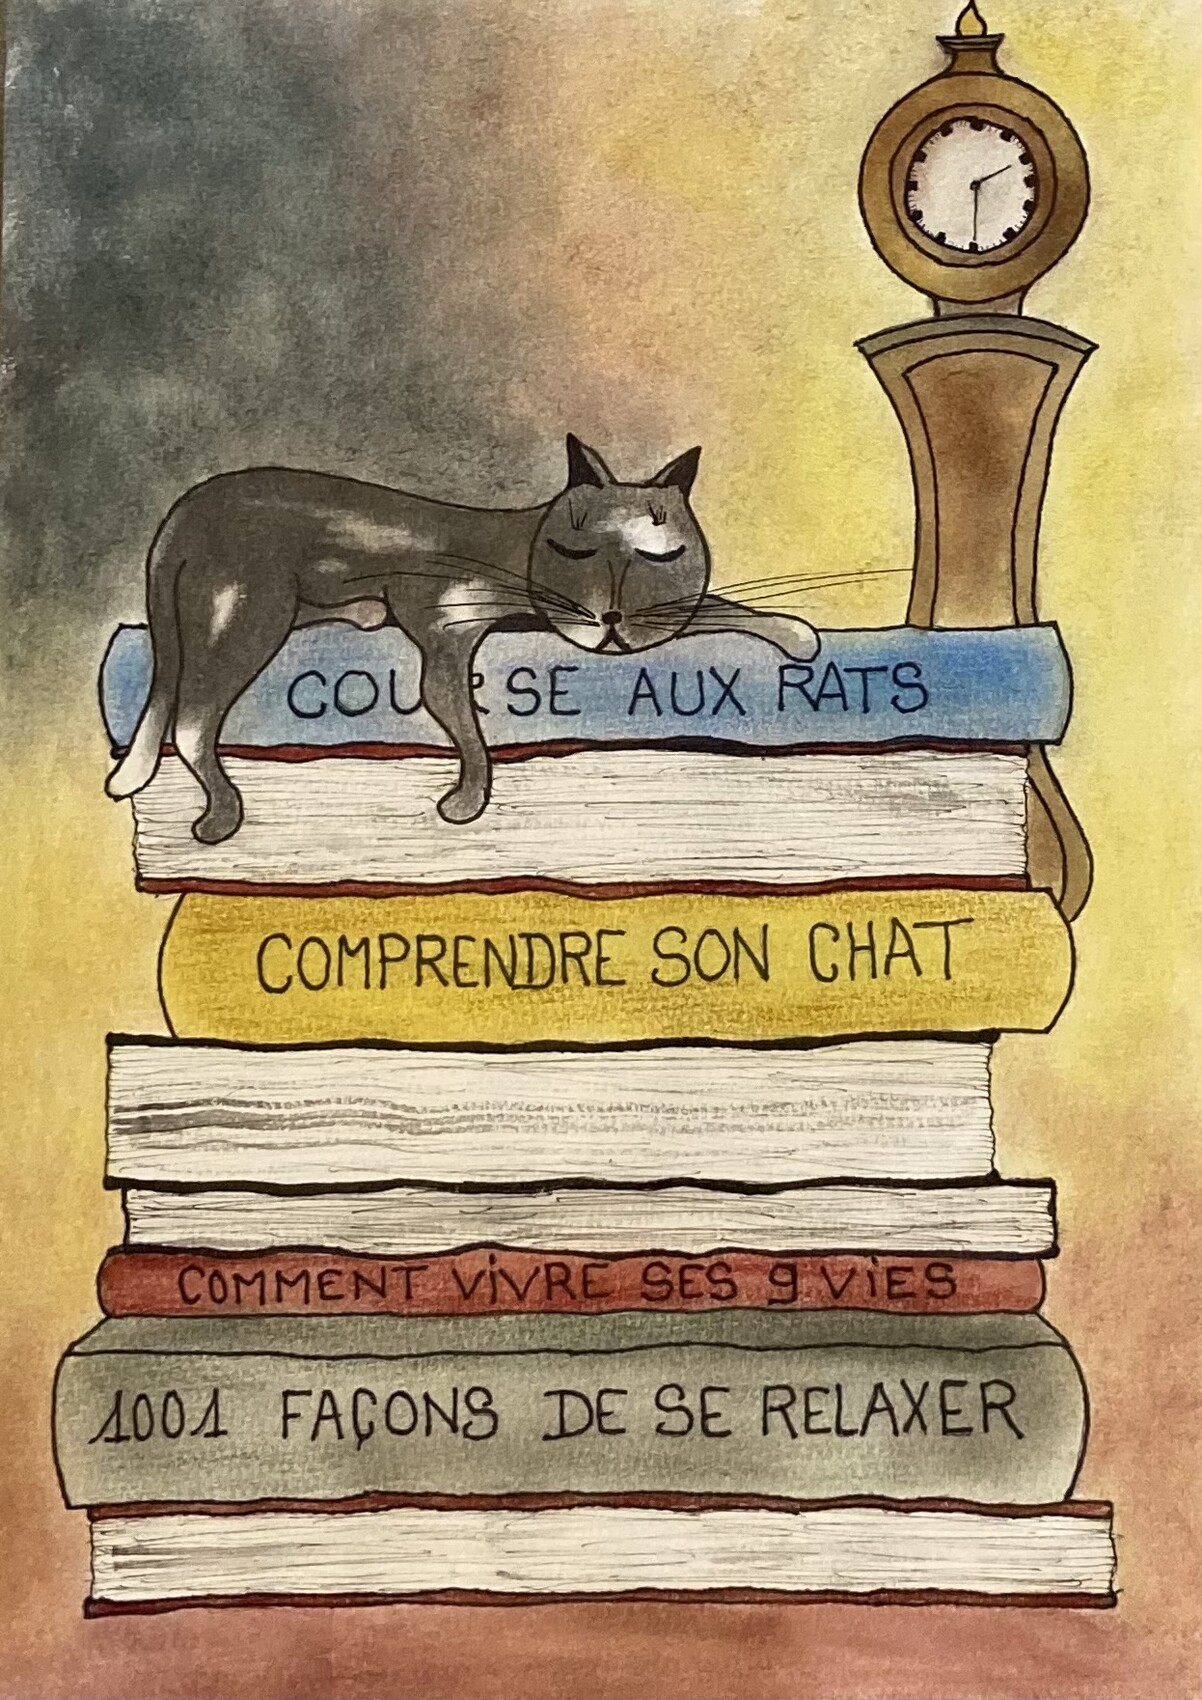 COURSE AUX RATS
COMPRENDRE SON CHAT
COMMENT VIVRE SES 9 VIES
1001 FAÇONS DE SE RELAXER